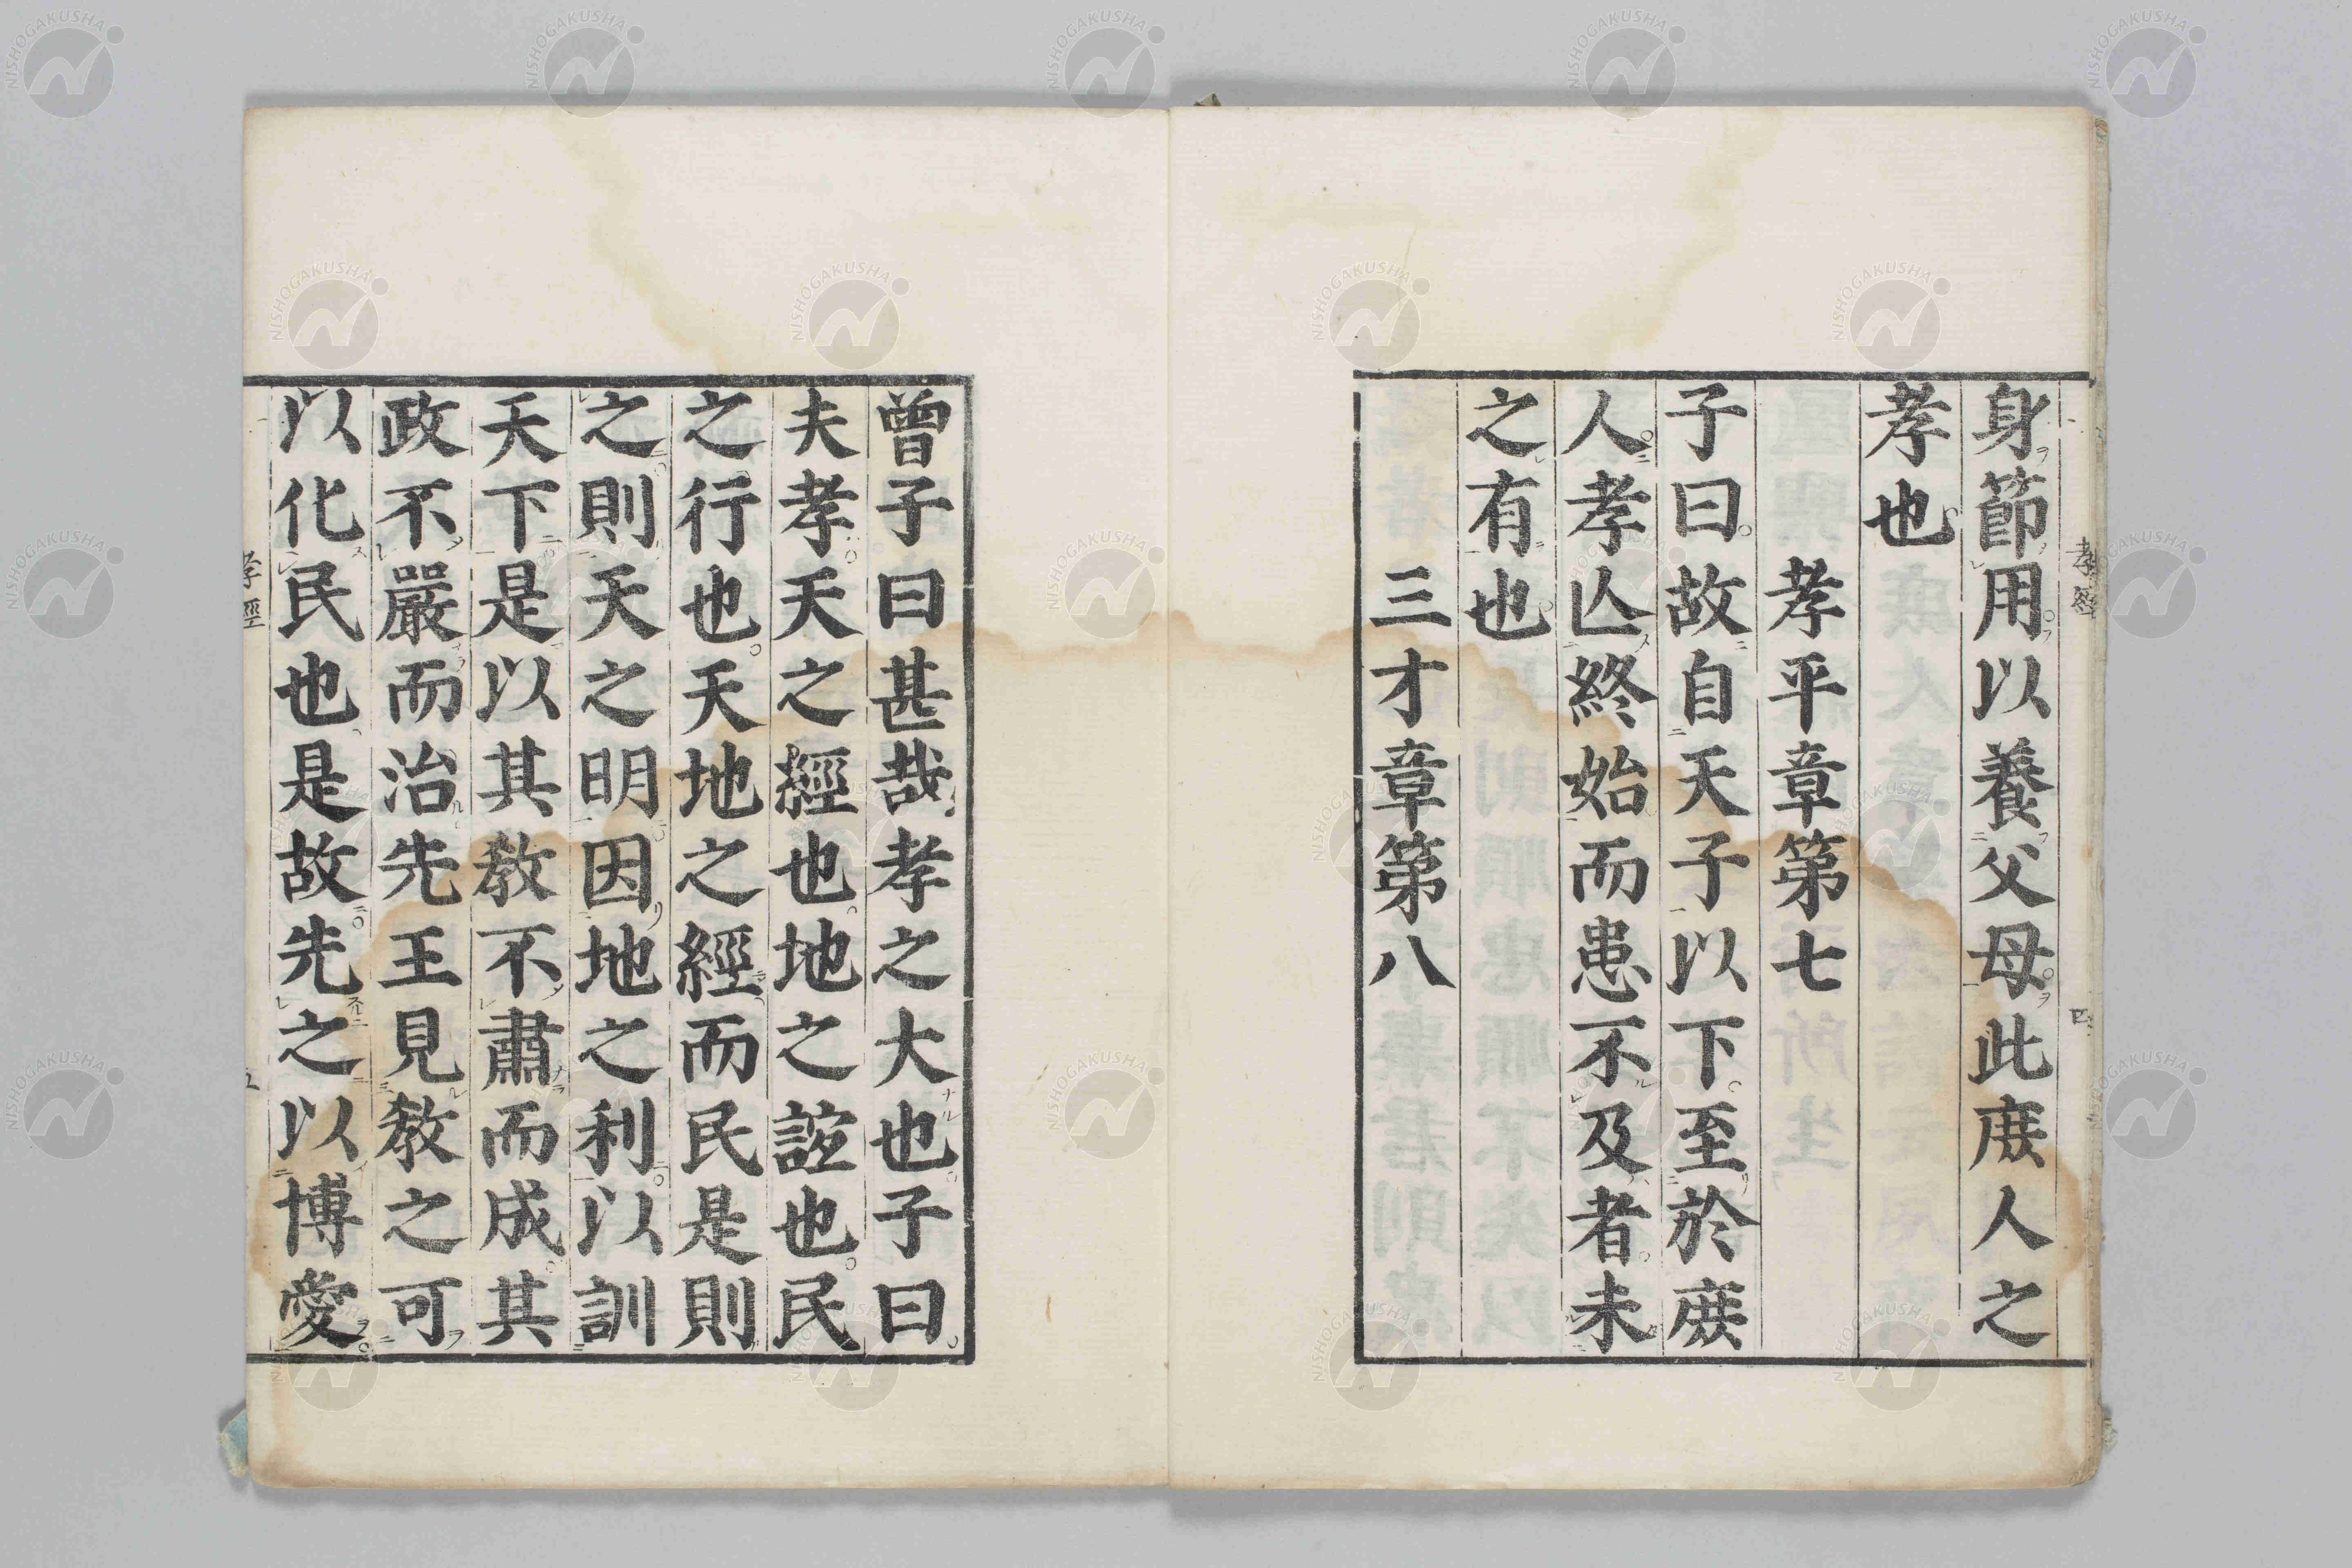 身節用以養父母此庶人之
孝也
孝平章第七
子曰故自天子以下至於庶
人孝亾終始而患不及者未
之有也
三才章第八
曾子曰甚哉孝之大也子曰
夫孝天之經也地之誼也民
之行也天地之經而民是則
之則天之明因地之利以訓
天下是以其教不肅而成其
政不嚴而治先王見教之可
以化民也是故先之以博愛
孝經
四
孝經
五
NISHOGAKUSHA